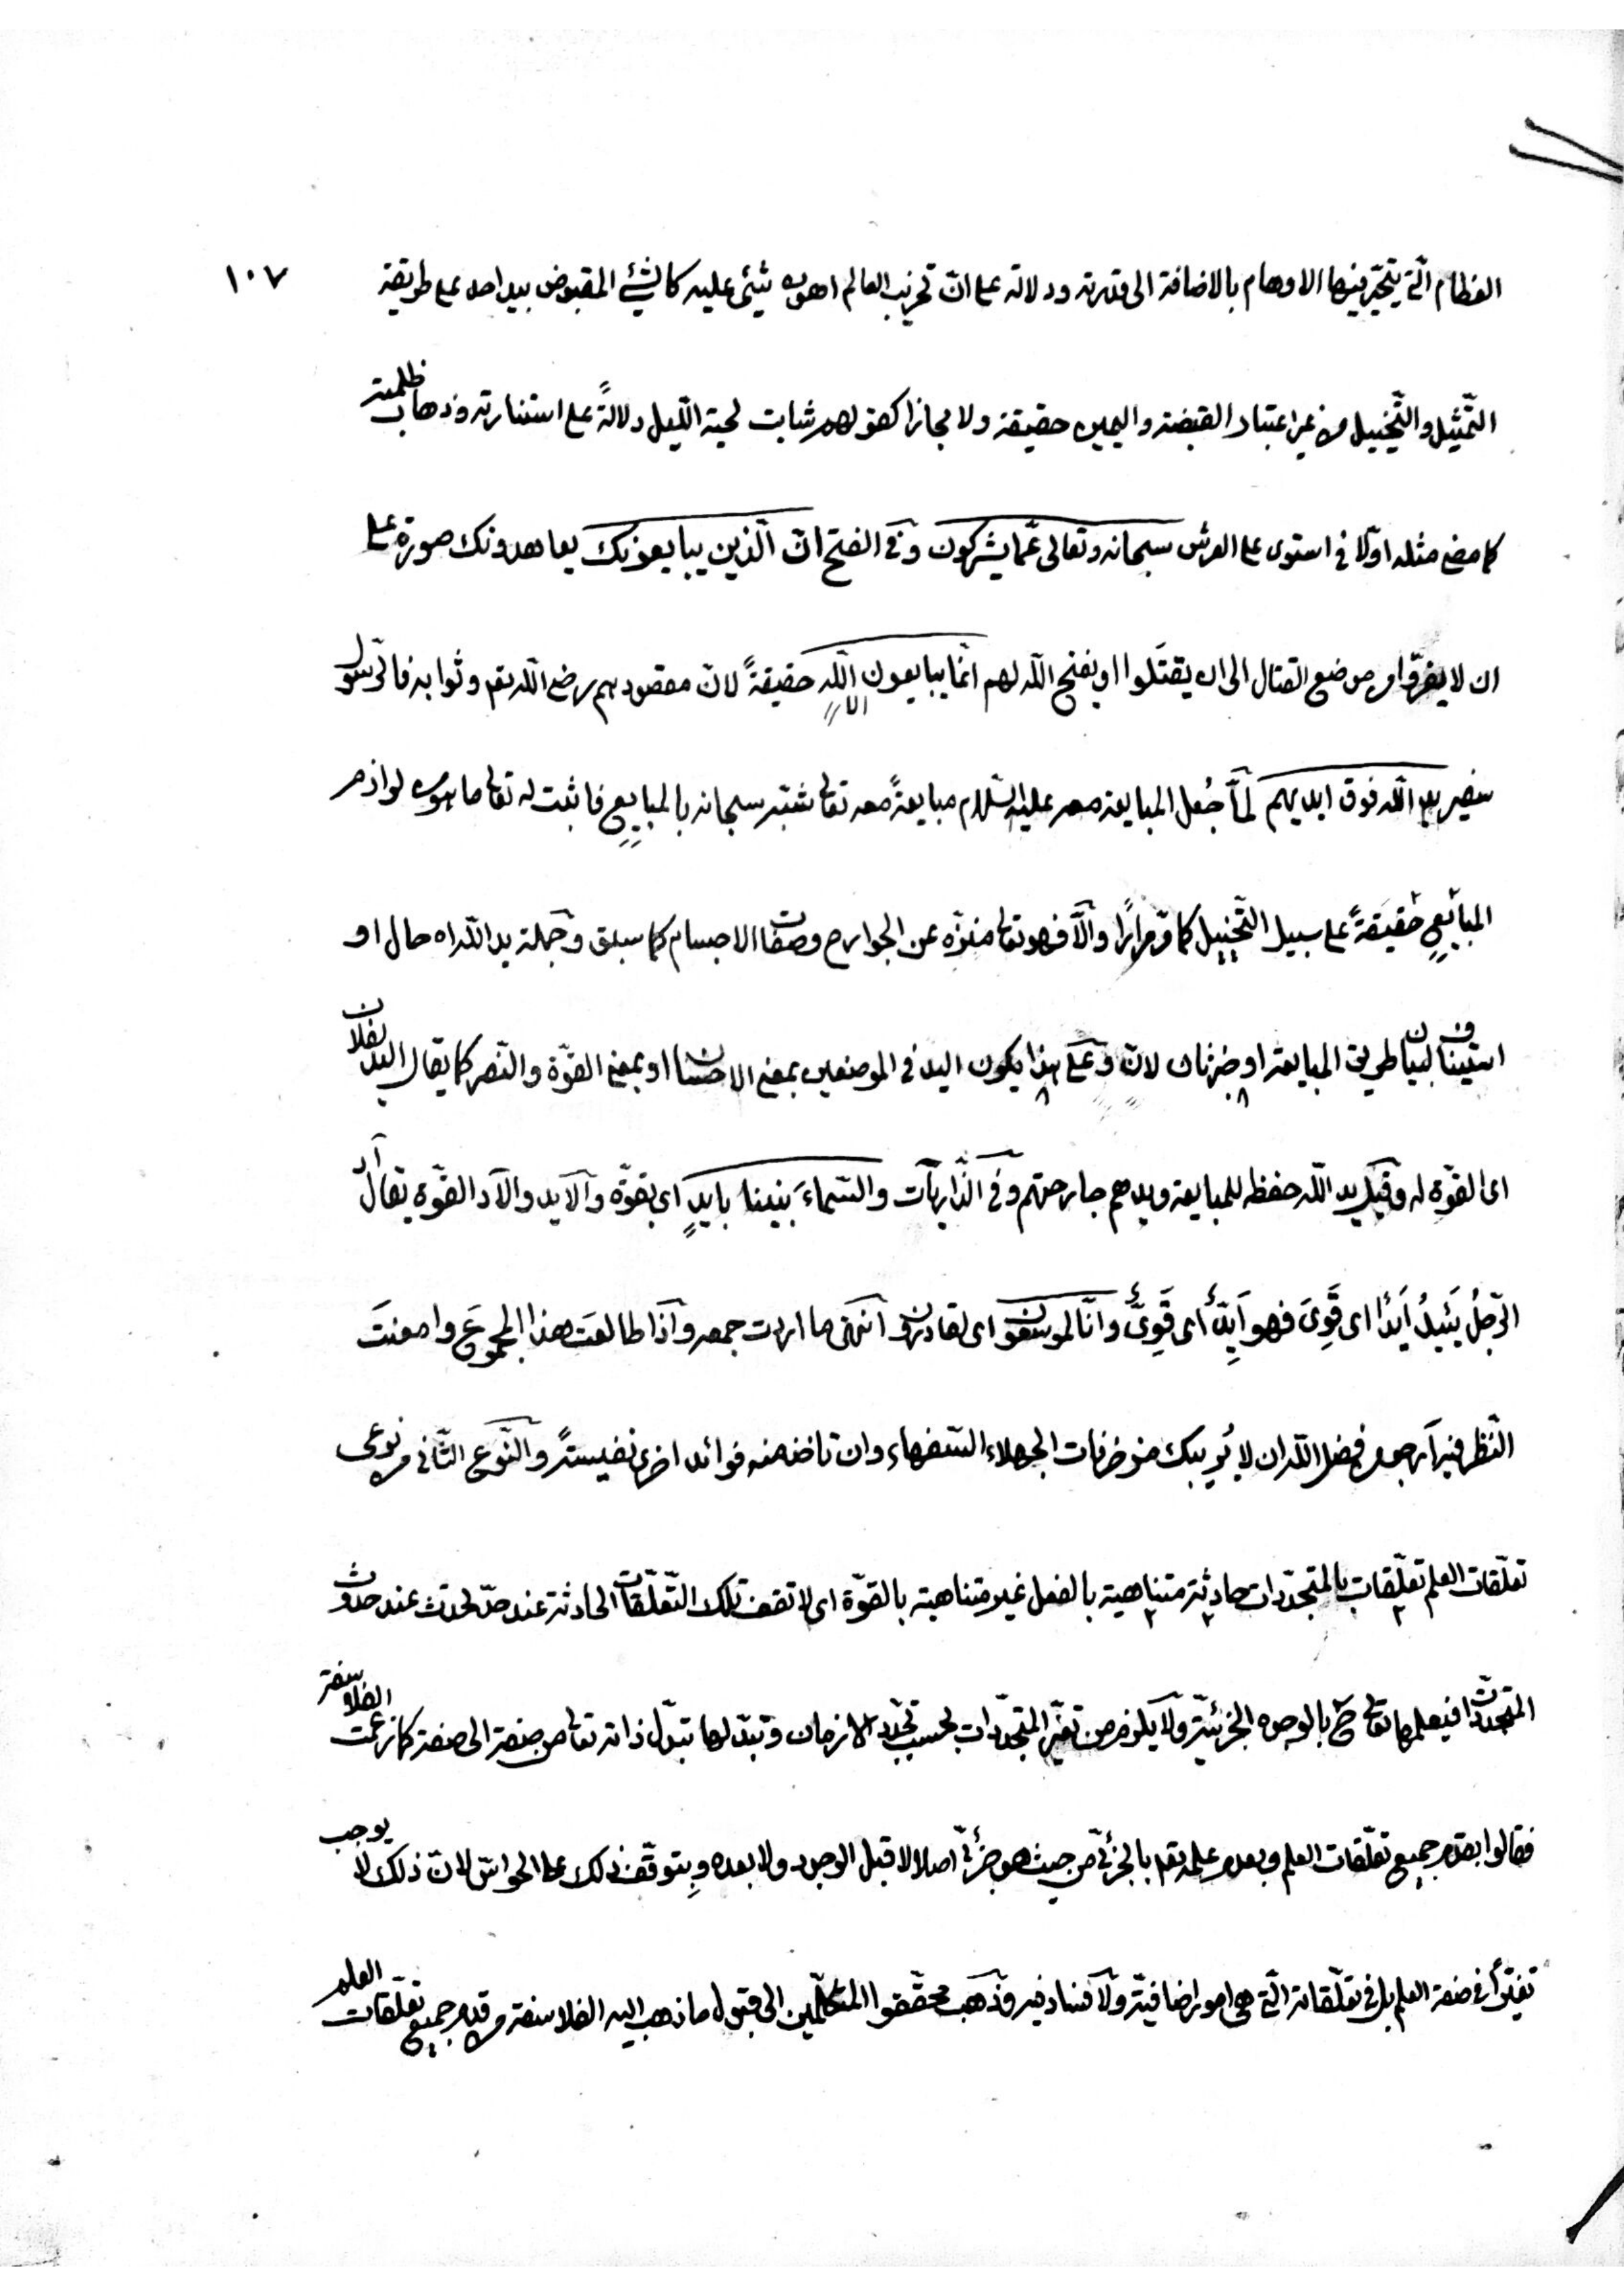 ١٠٧
العظام الّتي يتحيّر فيها الاوهام بالاضافة الى قدرته ودلالته على انّ تخريب العالم اهون شئ عليه كالشئ المقبوض بيد احد على طريقة
التّمثيل والتّخييل من غير اعتبار القبضة واليمين حقيقة ولا مجازا كقولهم شابت لحية اللّيل دلالةً على استنارته وذهاب ظلمته
كما مضى مثله اوّلا في استوى على العرش سبحانه وتعالى عمّا يشركون وفي الفتح انّ الّذين يبايعونك يعاهدونك صورة على
ان لا يفرّوا من موضع القتال الى ان يقتَلوا او يفتح اللّه لهم انّما يبايعون اللّه حقيقةً لانّ مقصودهم رضى اللّه تعم وثوابه فالرّسول
يد اللّه فوق ايديهم لمّا جُعل المبايعة معه عليه السّلام مبايعةً معه تعالى شبّه سبحانه بالمبايِع فاثبت له تعالى ما هو من لوازم
المبايِع حقيقةً على سبيل التّخييل كما مرّ مرارًا والّا فهو تعالى منزّه عن الجوارح وصفات الاجسام كما سبق وجملة يد اللّه اه حال او
استيناف لبيان طريق المبايعة او خبر ثان لانّ وعلى هذا يكون اليد في الموضعين بمعنى الاحسان او بمعنى القوّة والنّصر كما يقال اليد لفلان
اى القوّة له وقيل يد اللّه حفظه للمبايعة ويدهم جارحتهم وفي الذّاريات والسّماءَ بنينا بايدٍ اى بقوّة والآيد والآد القوّة يقال آد
الرّجلُ يَئيدُ اَيْدًا اى قَوِىَ فهو اَيِّدٌ اى قَوِىٌّ وانّا لموسعون اى لقادرون انتهى ما اردت جمعه واذا طالعتَ هذا المجموعَ وامعنتَ
النّظر فيه ارجو من فضل اللّه ان لا يُريبك مزخرفات الجهلاء السّفهاء وان تاخذ منه فوائد اخرى نفيسةً والنّوع الثّانى من نوعى
تعلّقات العلم تعلّقات بالمتجدّدات حادثة متناهية بالفعل غير متناهية بالقوّة اى لا تقف تلك التّعلّقات الحادثة عند حدّ تحدث عند حدوث
المتجدّدات فيعلمها تعالى ح بالوجوه الجزئيّة ولا يلزم من تغيّر المتجدّدات بحسب تجدّد الازمان وتبدّلها تبدّل ذاته تعالى من صفة الى صفة كما زعمت الفلاسفة
فقالوا بقدم جميع تعلّقات العلم وبعدم علمه تعم بالجزئىّ من حيث هو جزئىّ اصلا لا قبل الوجود ولا بعده وبتوقّف ذلك على الحواسّ لانّ ذلك لا يوجب
تغيّرًا في صفة العلم بل في تعلّقاته الّتي هى امور اضافيّة ولا فساد فيه وذهب محقّقوا المتكلّمين الى قبول ما ذهب اليه الفلاسفة من قدم جميع تعلّقات العلم